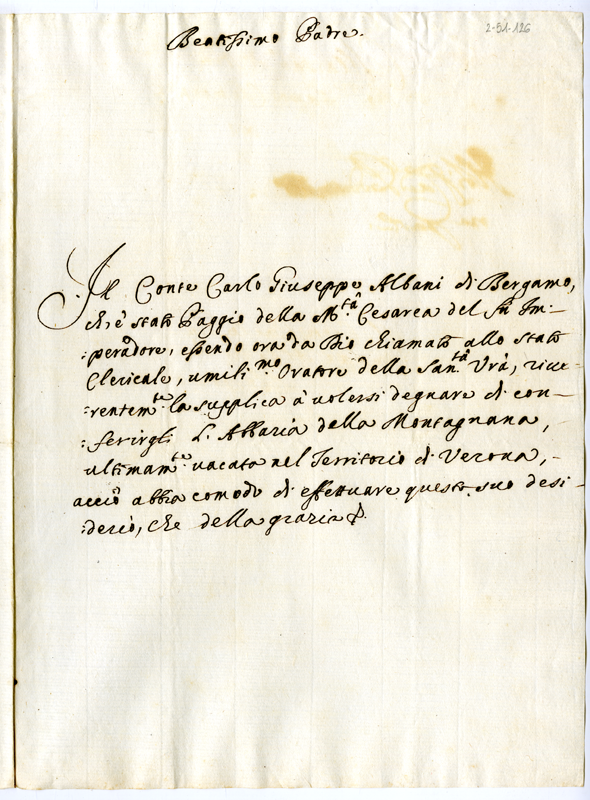 2-51-126
Beatissimo Padre.
Il Conte Carlo Giuseppe Albani di Bergamo,
ch'è stato Paggio della M.tà Cesarea del Sr Im-
:peradore, essendo ora da Dio chiamato allo stato
Clericale, umiliss.mo Oratore della San.tà Vrà, rive-
:rentem.te la supplica à volersi degnare di con-
:ferirgli L'Abbazia della Montagnana,
ultimam.te vacata nel Territorio di Verona,
acciò abbia comodo di effettuare questo suo desi-
:derio, che della grazia